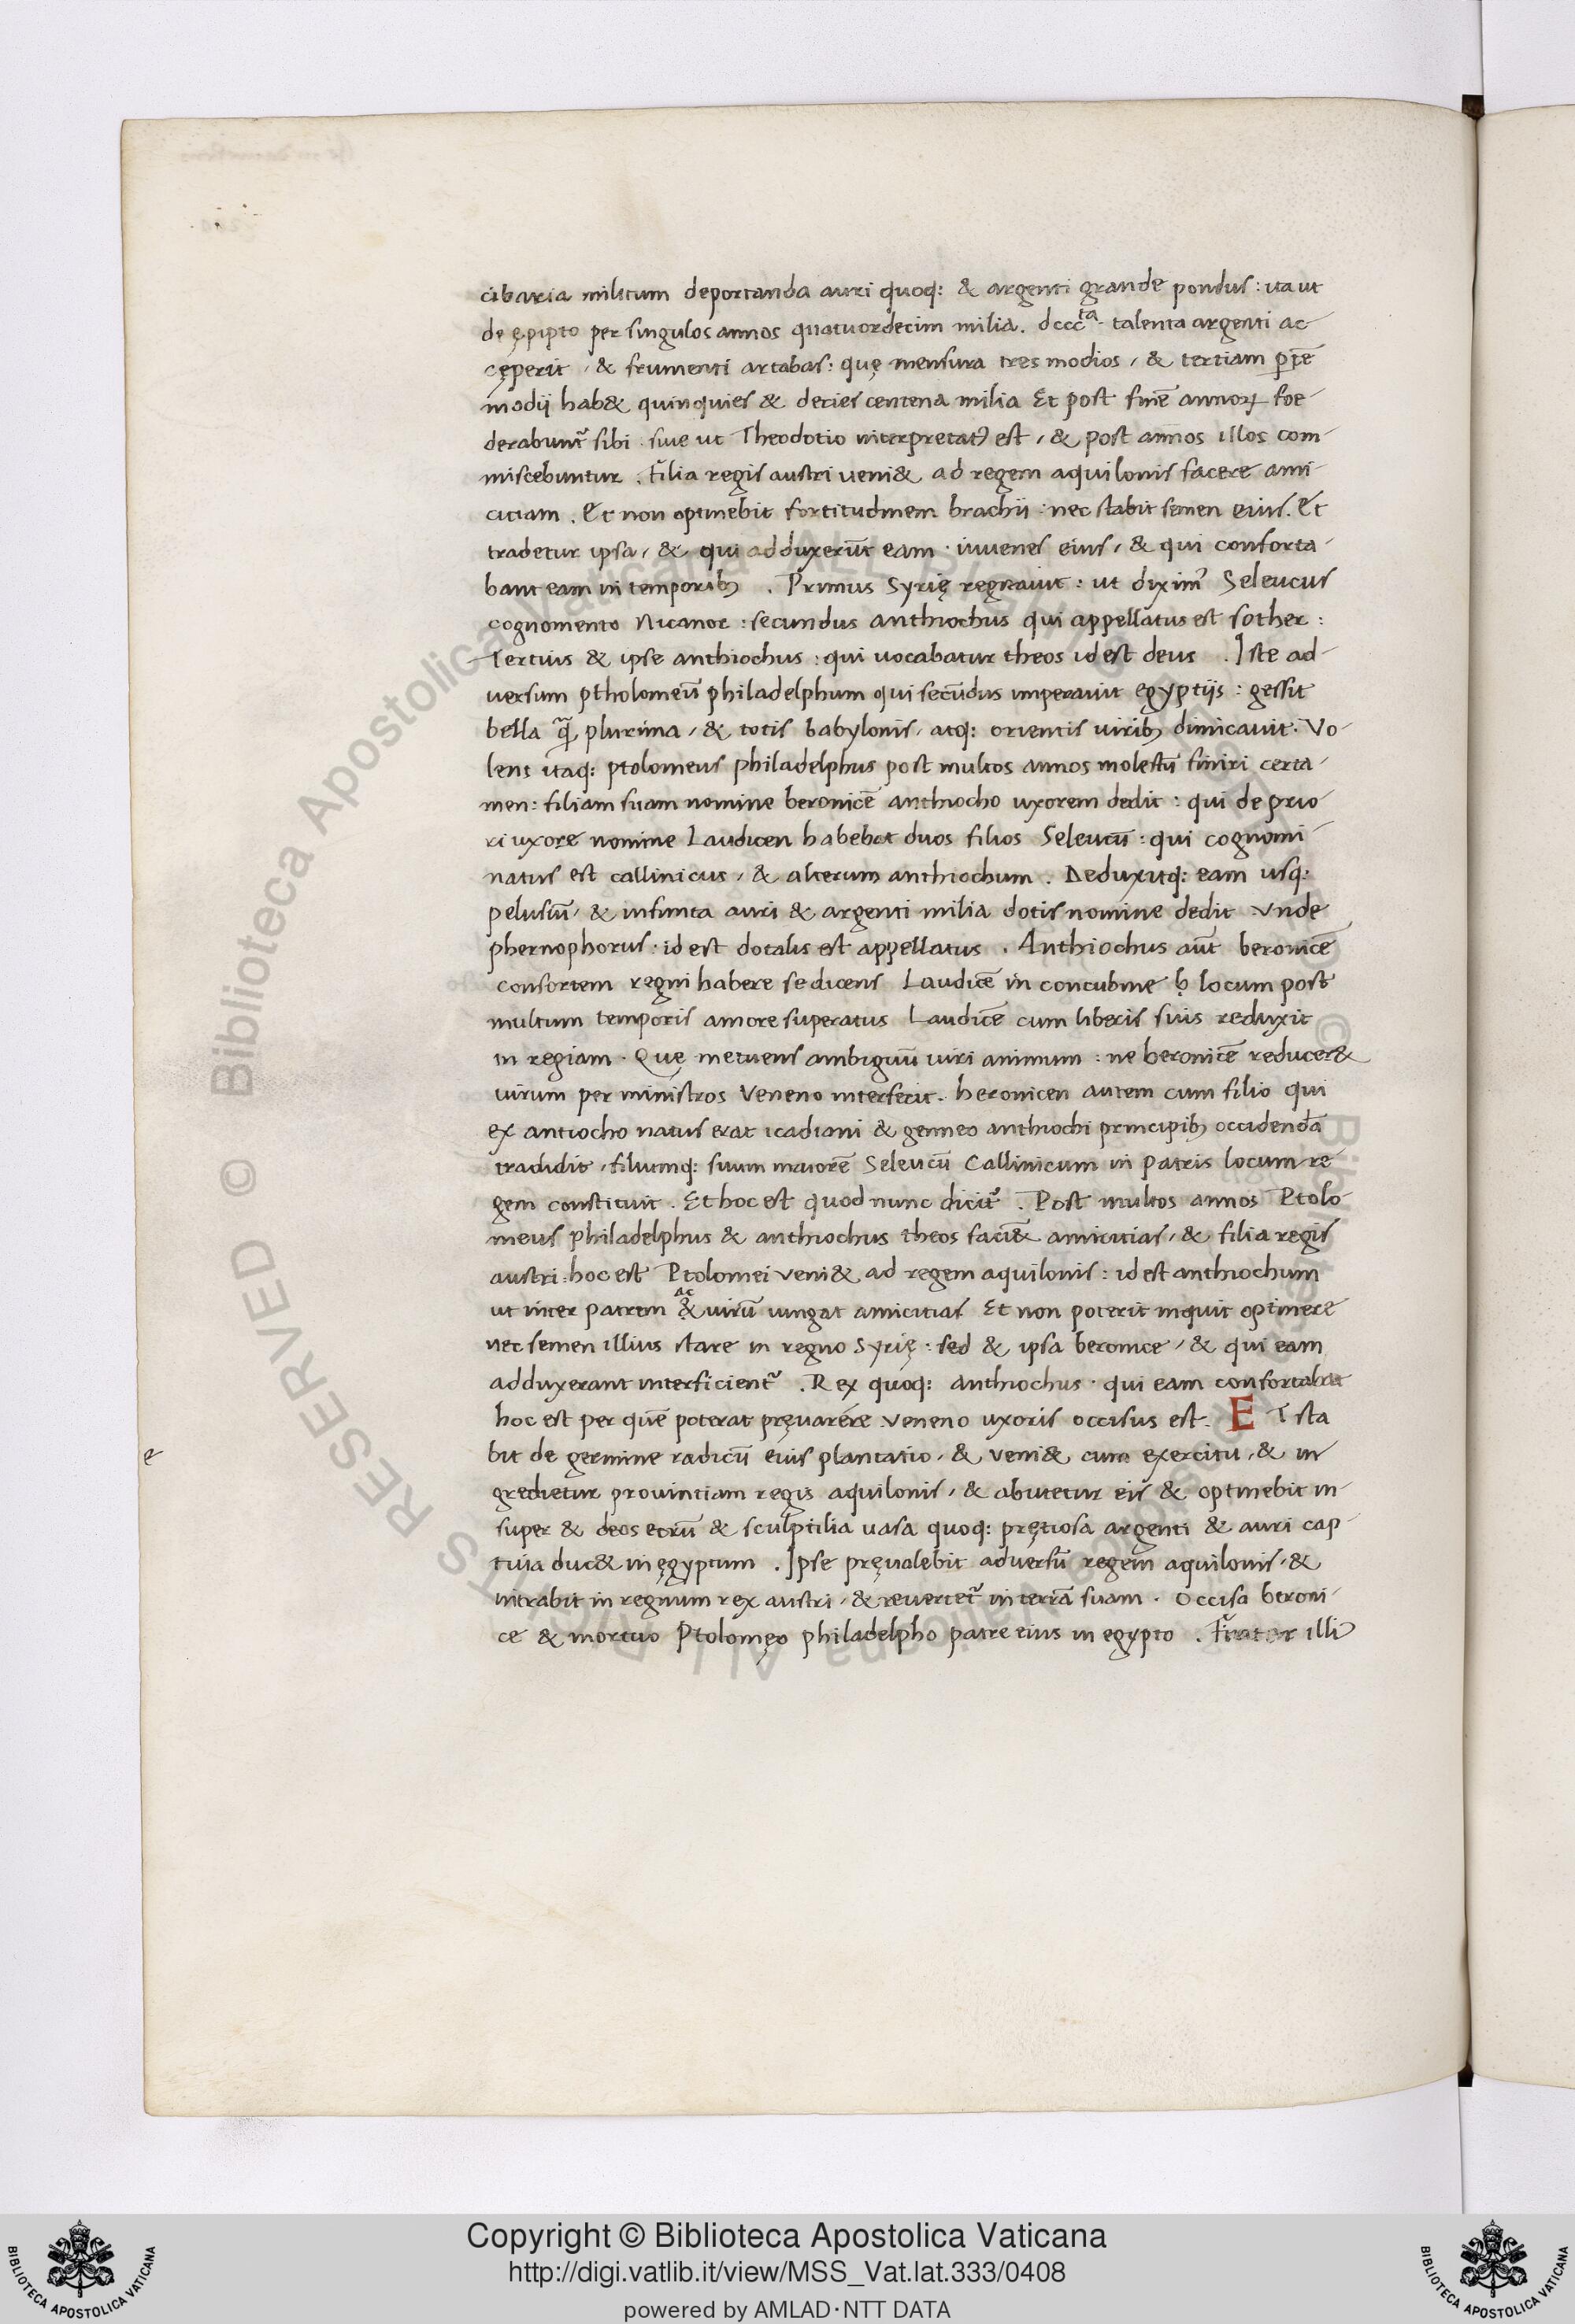 cibaria militum deportanda auri quoq: & argenti grande pondus: ita ut
de ępipto per singulos annos quatuordecim milia. dccc^ta. talenta argenti ac-
cęperit, & frumenti artabas: quę mensura tres modios, & tertiam ꝑtē
modij hab& quinquies & decies centena milia Et post finē annoꝝ foe-
derabunt᷑ sibi. siue ut Theodotio interpretatꝰ est, & post annos illos com-
miscebuntur. Filia regis austri ueni& ad regem aquilonis facere ami-
citiam. Et non optinebit fortitudinem brachii: nec stabit semen eius. Et
tradetur ipsa, & qui adduxerūt eam. iuuenes eius, & qui conforta-
bant eam in temporibꝫ. Primus Syrię regnauit: ut diximꝰ Seleucus
cognomento Nicanor: secundus anthiochus qui appellatus est sother:
Tertius & ipse anthiochus: qui uocabatur theos id est deus. Iste ad-
uersum ptholomeū philadelphum qui secūdus imperauit egyptijs: gessit
bella q̄ plurima, & totis babylonis, atq: orientis uiribꝫ dimicauit. Vo-
lens itaq: ptolomeus philadelphus post multos annos molestū finiri certa-
men: filiam suam nomine beronicē anthiocho uxorem dedit: qui de prio-
ri uxore nomine Laudicen habebat duos filios Seleucū: qui cognomi-
natus est callinicus, & alterum anthiochum. Deduxitq: eam usq:
pelusiū, & infinita auri & argenti milia dotis nomine dedit. Vnde
phernophorus. id est dotalis est appellatus. Anthiochus aūt beronicē
consortem regni habere se dicens Laudicē in concubine ḥ locum post
multum temporis amore superatus Laudicē cum liberis suis reduxit
in regiam. Quę metuens ambiguū uiri animum: ne beronicē reducer&
uirum per ministros Veneno interfecit. beronicen autem cum filio qui
ex antiocho natus erat icadiani & genneo anthiochi principibꝫ occidendā
tradidit, filiumq: suum maiorē Seleucū Callinicum in patris locum re-
gem constituit. Et hoc est quod nunc dicit᷑. Post multos annos Ptolo-
meus philadelphus & anthiochus theos faci& amicitias, & filia regis
austri: hoc est Ptolomei veni& ad regem aquilonis: id est anthiochum
ut inter patrem ac & uirū iungat amicitias Et non poterit inquit optinere
nec semen illius stare in regno Syrię: sed & ipsa beronice, & qui eam
adduxerant interficient᷑. Rex quoq: anthiochus. qui eam confortabat
hoc est per quē poterat pręualere veneno uxoris occisus est. ET sta
bit de germine radicū eius plantatio, & veni& cum exercitu, & in
gredietur prouintiam regis aquilonis, & abutetur eis & optinebit in-
super & deos eorū & sculptilia uasa quoq: pręciosa argenti & auri cap-
tiua duc& in ęgyptum. Ipse pręualebit aduersū regem aquilonis, &
intrabit in regnum rex austri, & reuertet᷑ in terrā suam. Occisa beroni-
ce & mortuo Ptolomęo philadelpho patre eius in egypto. Frater illiꝰ
e
Copyright © Biblioteca Apostolica Vaticana
http://digi.vatlib.it/view/MSS_Vat.lat.333/0408
powered by AMLAD·NTT DATA